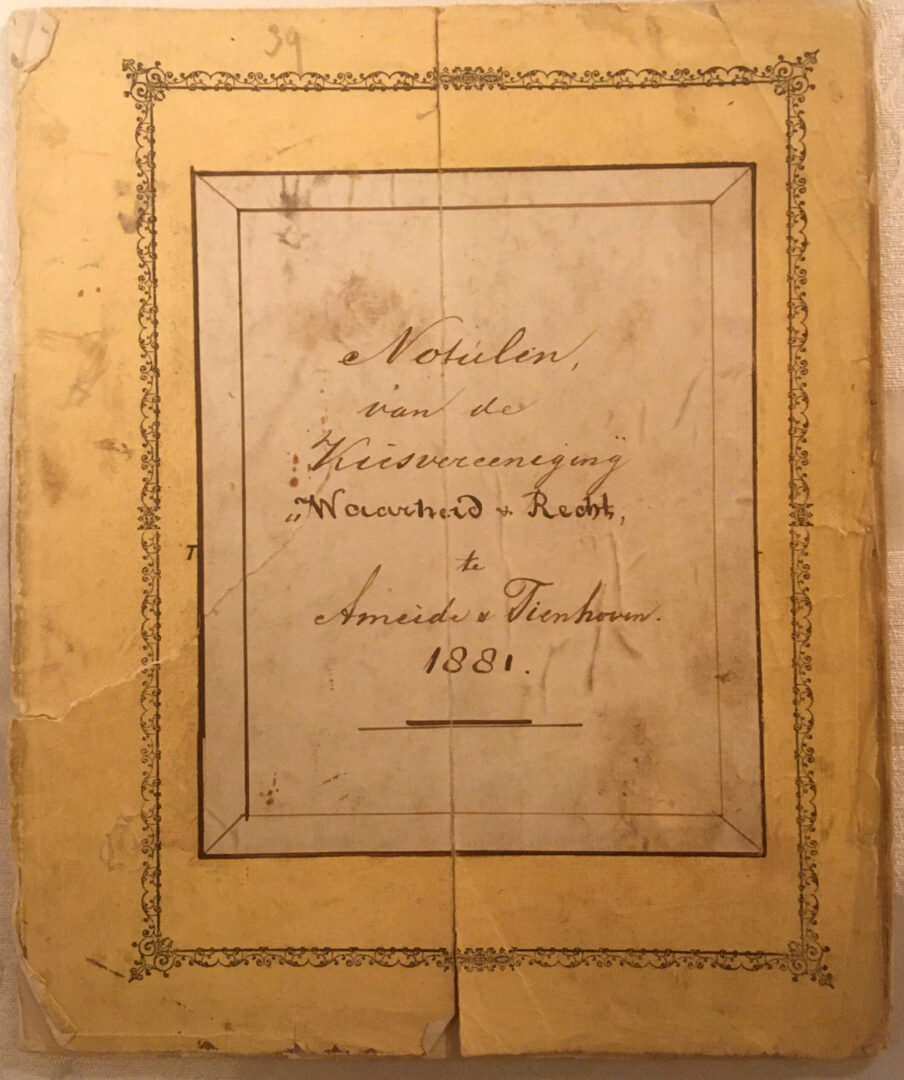 39
Notulen,
van de
Kiesvereeniging
„Waarheid & Recht,
te
Ameide & Tienhoven.
1881.
T